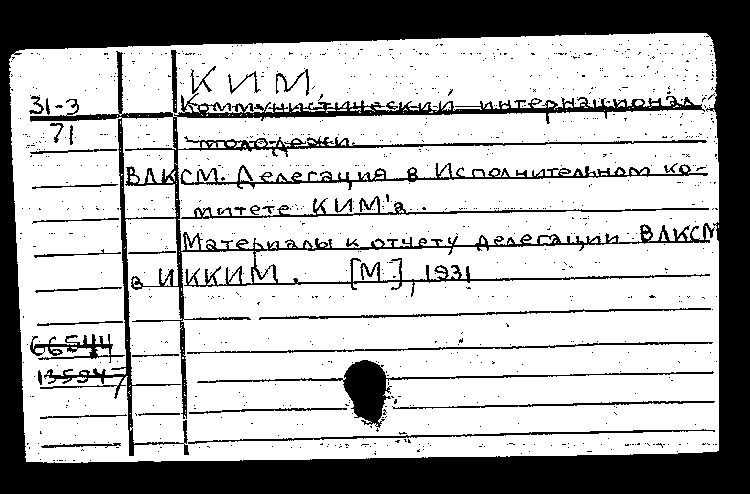 КИМ,
31-3 Коммунистический интернационал
71
молодежи.
ВЛКСМ. Делегация в Исполнительном ко-
митете КИМ'а.
Материалы к отчету делегации ВЛКСМ
в ИККИМ. [М], 1931
66544
135947